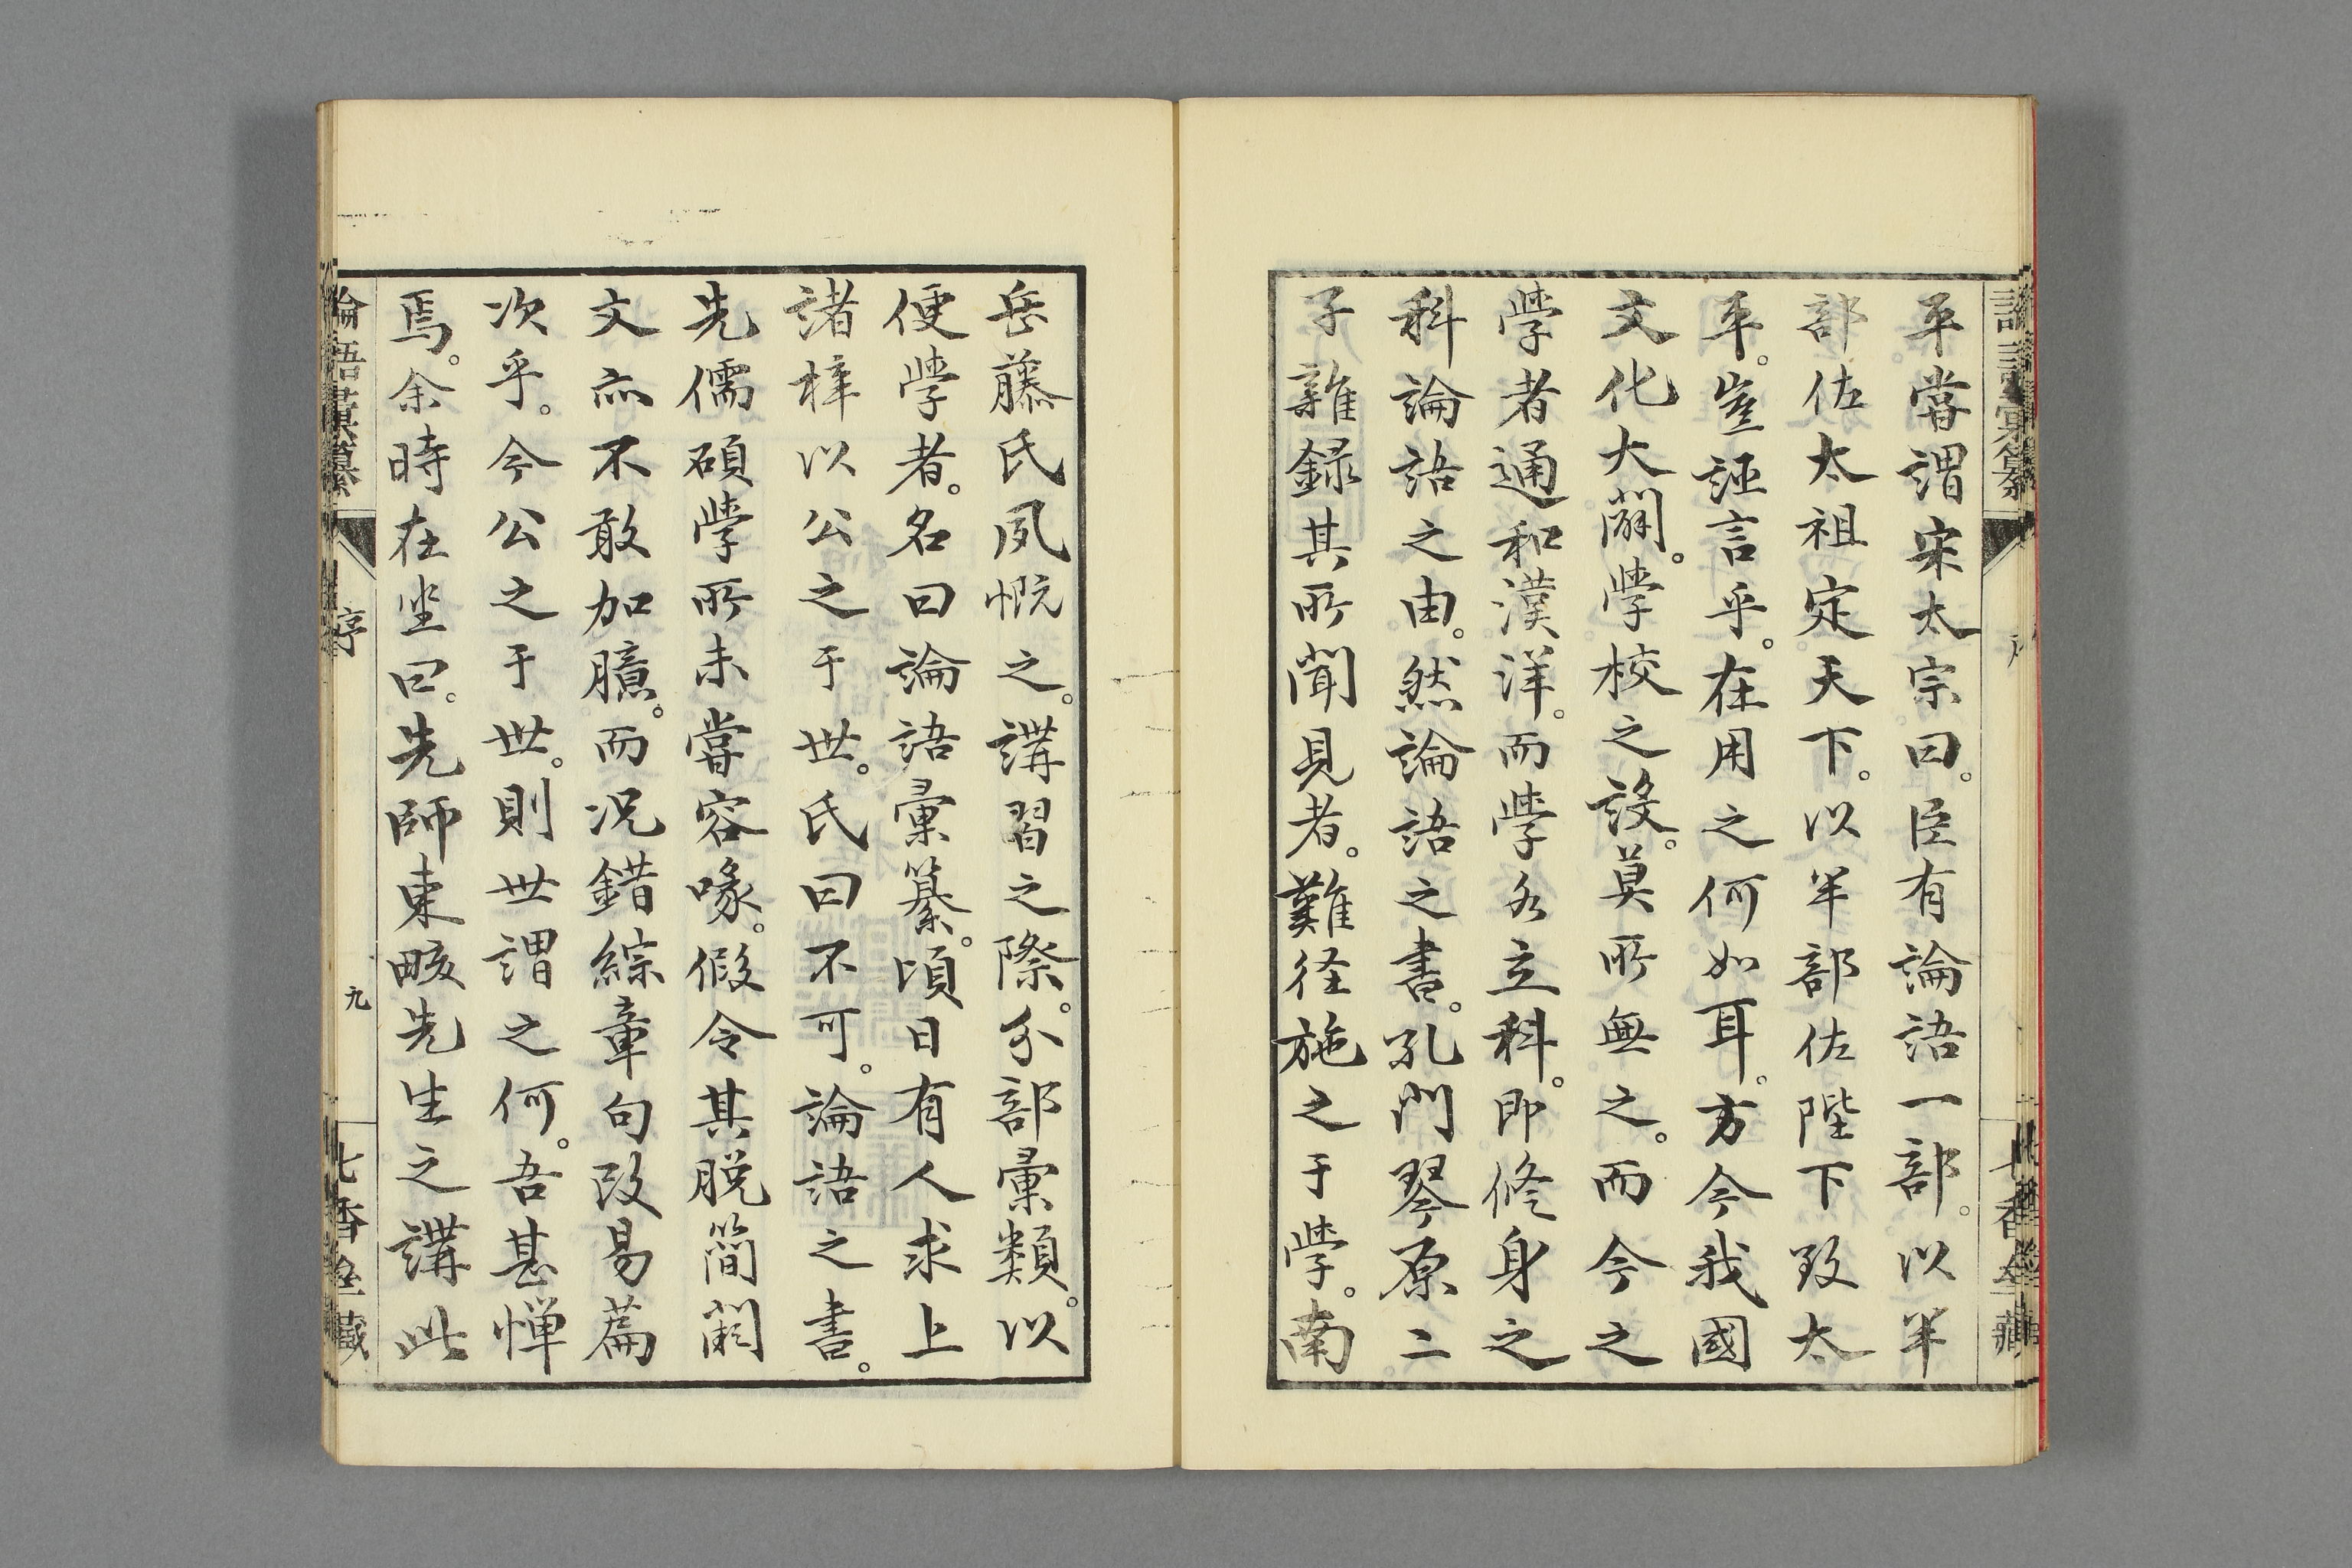 平嘗謂宋太宗曰。臣有論語一部。以半
部佐太祖定天下。以半部佐陛下致太
平。豈誣言乎。在用之何如耳。方今我國
文化大闢。學校之設。莫所無之。而今之
學者通和漢洋。而學各立科。即修身之
科論語之由。然論語之書。孔門琴原二
子雜録其所聞見者。難径施之于學。南
岳藤氏夙慨之。講習之際。分部彙類。以
便學者。名曰論語彙纂。頃日有人求上
諸梓以公之于世。氏曰不可。論語之書。
先儒碩學所未嘗容喙。假令其脱簡闕
文亦不敢加臆。而况錯綜章句改易篇
次乎。今公之于世。則世謂之何。吾甚憚
焉。余時在坐曰。先師東畡先生之講此
論語彙纂
序
九
七香齋藏